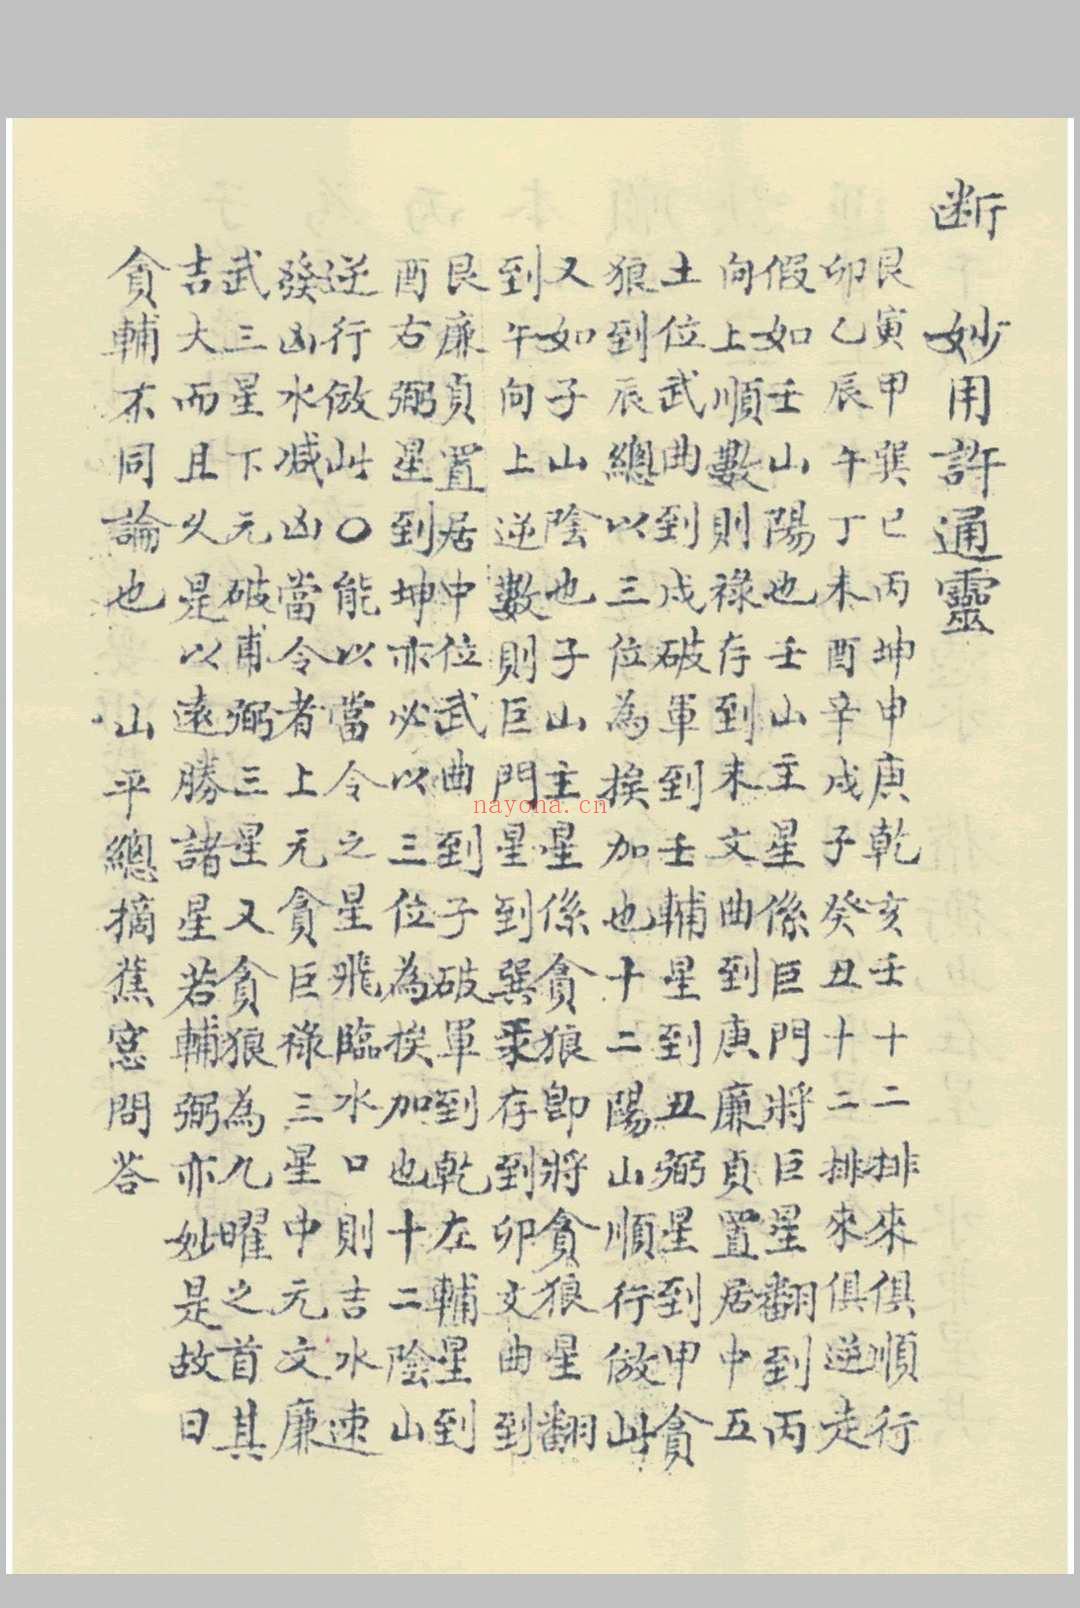 断
妙用許通靈
艮寅甲巽巳丙坤申庚乾亥壬十二排來俱順行
卯乙辰午丁未酉辛戌子癸丑十二排來俱逆走
假如壬山陽也壬山主星係巨門將巨星翻到丙
向上順數則祿存到未文曲到庚廉貞置居中五
土位武曲到戌破軍到壬輔星到丑弼星到甲貪
狼到辰總以三位為挨加也十二陽山順行倣此
又如子山陰也子山主星係貪狼卽將貪狼星翻
到午向上逆數則巨門星到巽祿存到卯文曲到
艮廉貞置居中位武曲到子破軍到乾左輔星到
酉右弼星到坤亦必以三位為挨加也十二陰山
逆行倣此〇能以當令之星飛臨水口則吉水速
發凶水減凶當令者上元貪巨祿三星中元文廉
武三星下元破甫弼三星又貪狼為九曜之首其
吉大而且久是以遠勝諸星若輔弼亦妙是故曰
貪輔不同論也 山平總摘蕉窓問荅
nayona.cn